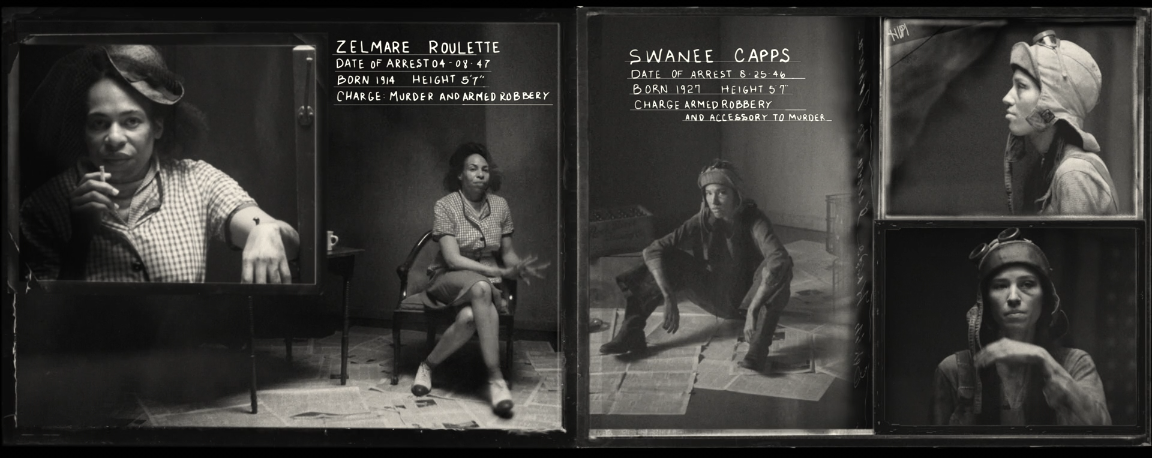 ZELMARE ROULETTE
DATE OF ARREST 04-08-47
BORN 1914 HEIGHT 5'7"
CHARGE: MURDER AND ARMED ROBBERY
SWANEE CAPPS
DATE OF ARREST 8-25-46
BORN 1927 HEIGHT 5 7"
CHARGE ARMED ROBBERY
AND ACCESSORY TO MURDER